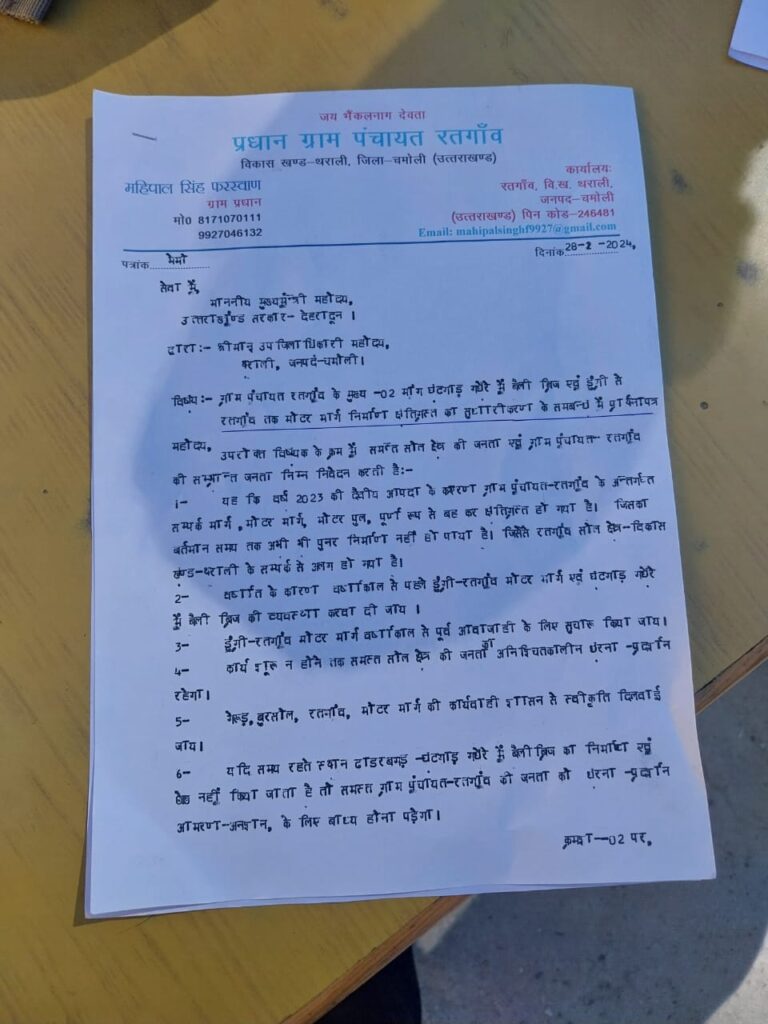 जय भैंकलनाग देवता
प्रधान ग्राम पंचायत रतगाँव
विकास खण्ड-थराली, जिला-चमोली (उत्तराखण्ड)
महिपाल सिंह फरस्वाण
ग्राम प्रधान
मो0 8171070111
9927046132
कार्यालयः
रतगाँव, वि.ख. थराली,
जनपद-चमोली
(उत्तराखण्ड) पिन कोड-246481
Email: mahipalsinghf9927@gmail.com
पत्रांक मेमो
दिनांक 28-2-2024,
सेवा में,
माननीय मुख्यमंत्री महोदय,
उत्तराखण्ड सरकार- देहरादून ।
द्वारा :- श्रीमान् उपजिलाधिकारी महोदय,
थराली, जनपद-चमोली।
विषय :- ग्राम पंचायत रतगाँव के मुख्य -02 मांग घटगाड़ गधेरे में बैली ब्रिज एवं डुंग्री से
रतगाँव तक मोटर मार्ग निर्माण क्षतिग्रस्त का सुधारीकरण के सम्बन्ध में प्रार्थनापत्र
महोदय, उपरोक्त विषयक के क्रम में समस्त सोल क्षेत्र की जनता एवं ग्राम पंचायत- रतगाँव
की सम्भ्रान्त जनता निम्न निवेदन करती है:-
1- यह कि वर्ष 2023 की दैवीय आपदा के कारण ग्राम पंचायत-रतगाँव के अन्तर्गत
सम्पर्क मार्ग, मोटर मार्ग, मोटर पुल, पूर्ण रूप से बह कर क्षतिग्रस्त हो गया है। जिसका
वर्तमान समय तक अभी भी पुनर निर्माण नहीं हो पाया है। जिससे रतगाँव सोल क्षेत्र-विकास
खण्ड-थराली के सम्पर्क से अलग हो गया है।
2- वर्षात के कारण वर्षाकाल से पहले डुंग्री-रतगाँव मोटर मार्ग एवं घटगाड़ गधेरे
में बैली ब्रिज की व्यवस्था करवा दी जाय ।
3- डुंग्री-रतगाँव मोटर मार्ग वर्षाकाल से पूर्व आवाजाही के लिए सुचारू किया जाय।
4- कार्य शुरू न होने तक समस्त सोल क्षेत्र की जनता का अनिश्चितकालीन धरना -प्रदर्शन
रहेगा।
5- गेरूड़, बुरसोल, रतगाँव, मोटर मार्ग की कार्यवाही शासन से स्वीकृति दिलवाई
जाय।
6- यदि समय रहते स्थान ढाडरबगड़ -घटगाड़ गधेरे में बैली ब्रिज का निर्माण एवं
नहीं किया जाता है तो समस्त ग्राम पंचायत-रतगाँव की जनता को धरना -प्रदर्शन
आमरण-अनशन, के लिए बाध्य होना पड़ेगा।
क्रमशः-02 पर,